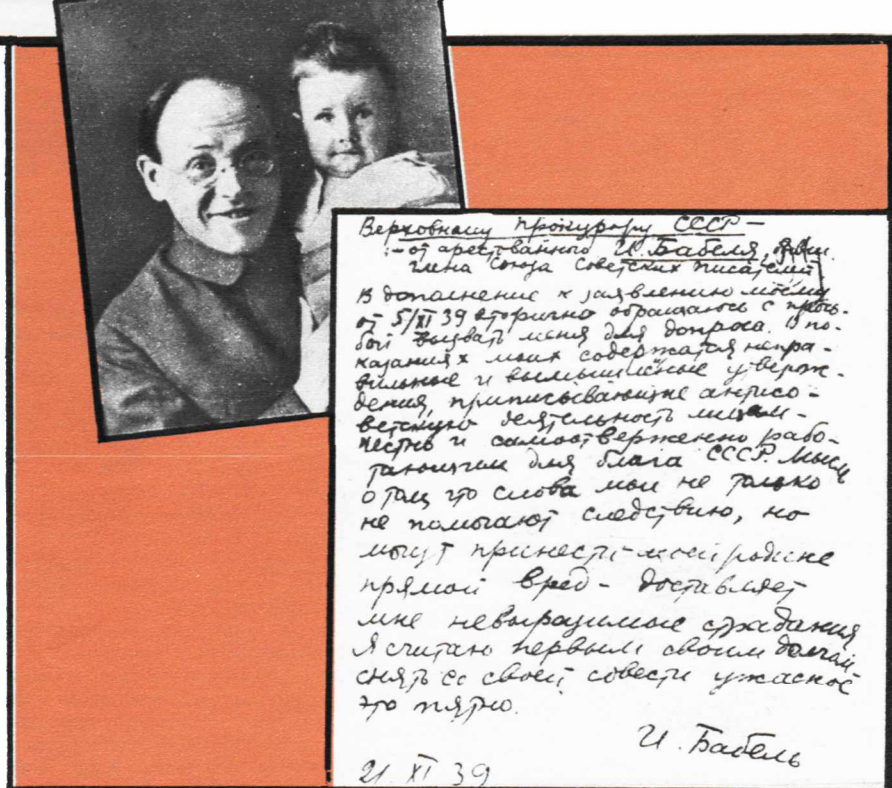 Верховному Прокурору СССР –
от арестованного И. Бабеля, бывш.
члена Союза Советских писателей
В дополнение к заявлению моему
от 5/XI 39 вторично обращаюсь с прось-
бой вызвать меня для допроса. В по-
казаниях моих содержатся непра-
вильные и вымышленные утверж-
дения, приписывающие антисо-
ветскую деятельность лицам,
честно и самоотверженно рабо-
тающим для блага СССР. Мысль
о том, что слова мои не только
не помогают следствию, но
могут принести моей родине
прямой вред – доставляет
мне невыразимые страдания
Я считаю первым своим долгом
снять со своей совести ужасное
это пятно.
И. Бабель
21. XI 39